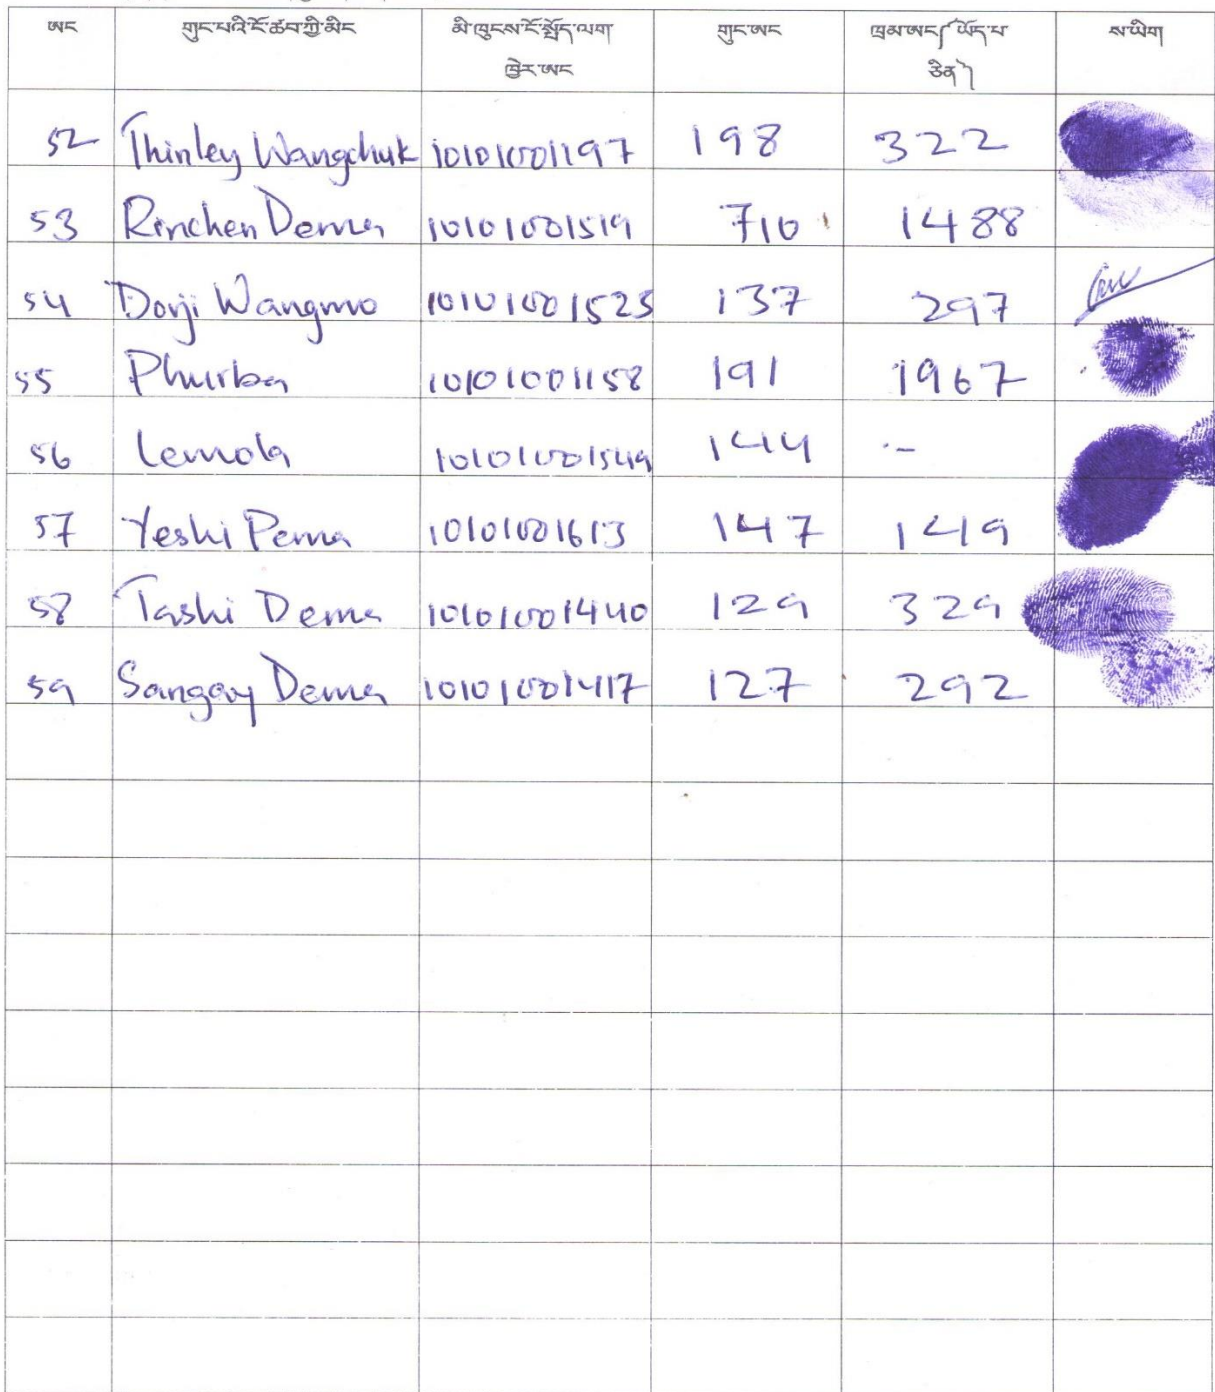 ཨང གུང་པའི་ངོ་ཚབ་ཀྱི་མིང མི་ཁུངས་ངོ་སྤྲོད་ལག་ཁྱེར་ཨང གུང་ཨང ཁྲམ་ཨང༼ ཡོད་པ་ཅིན༽ ས་ཡིག
52 Thinley Wangchuk 10101001197 198 322
53 Rinchen Dema 10101001519 710 1488
54 Dorji Wangmo 10101001523 137 297
55 Phurba 10101001158 191 1967
56 Lemola 10101001549 144 -
57 Yeshi Pema 10101001613 147 149
58 Tashi Dema 10101001440 129 329
59 Sangay Dema 10101001417 127 292